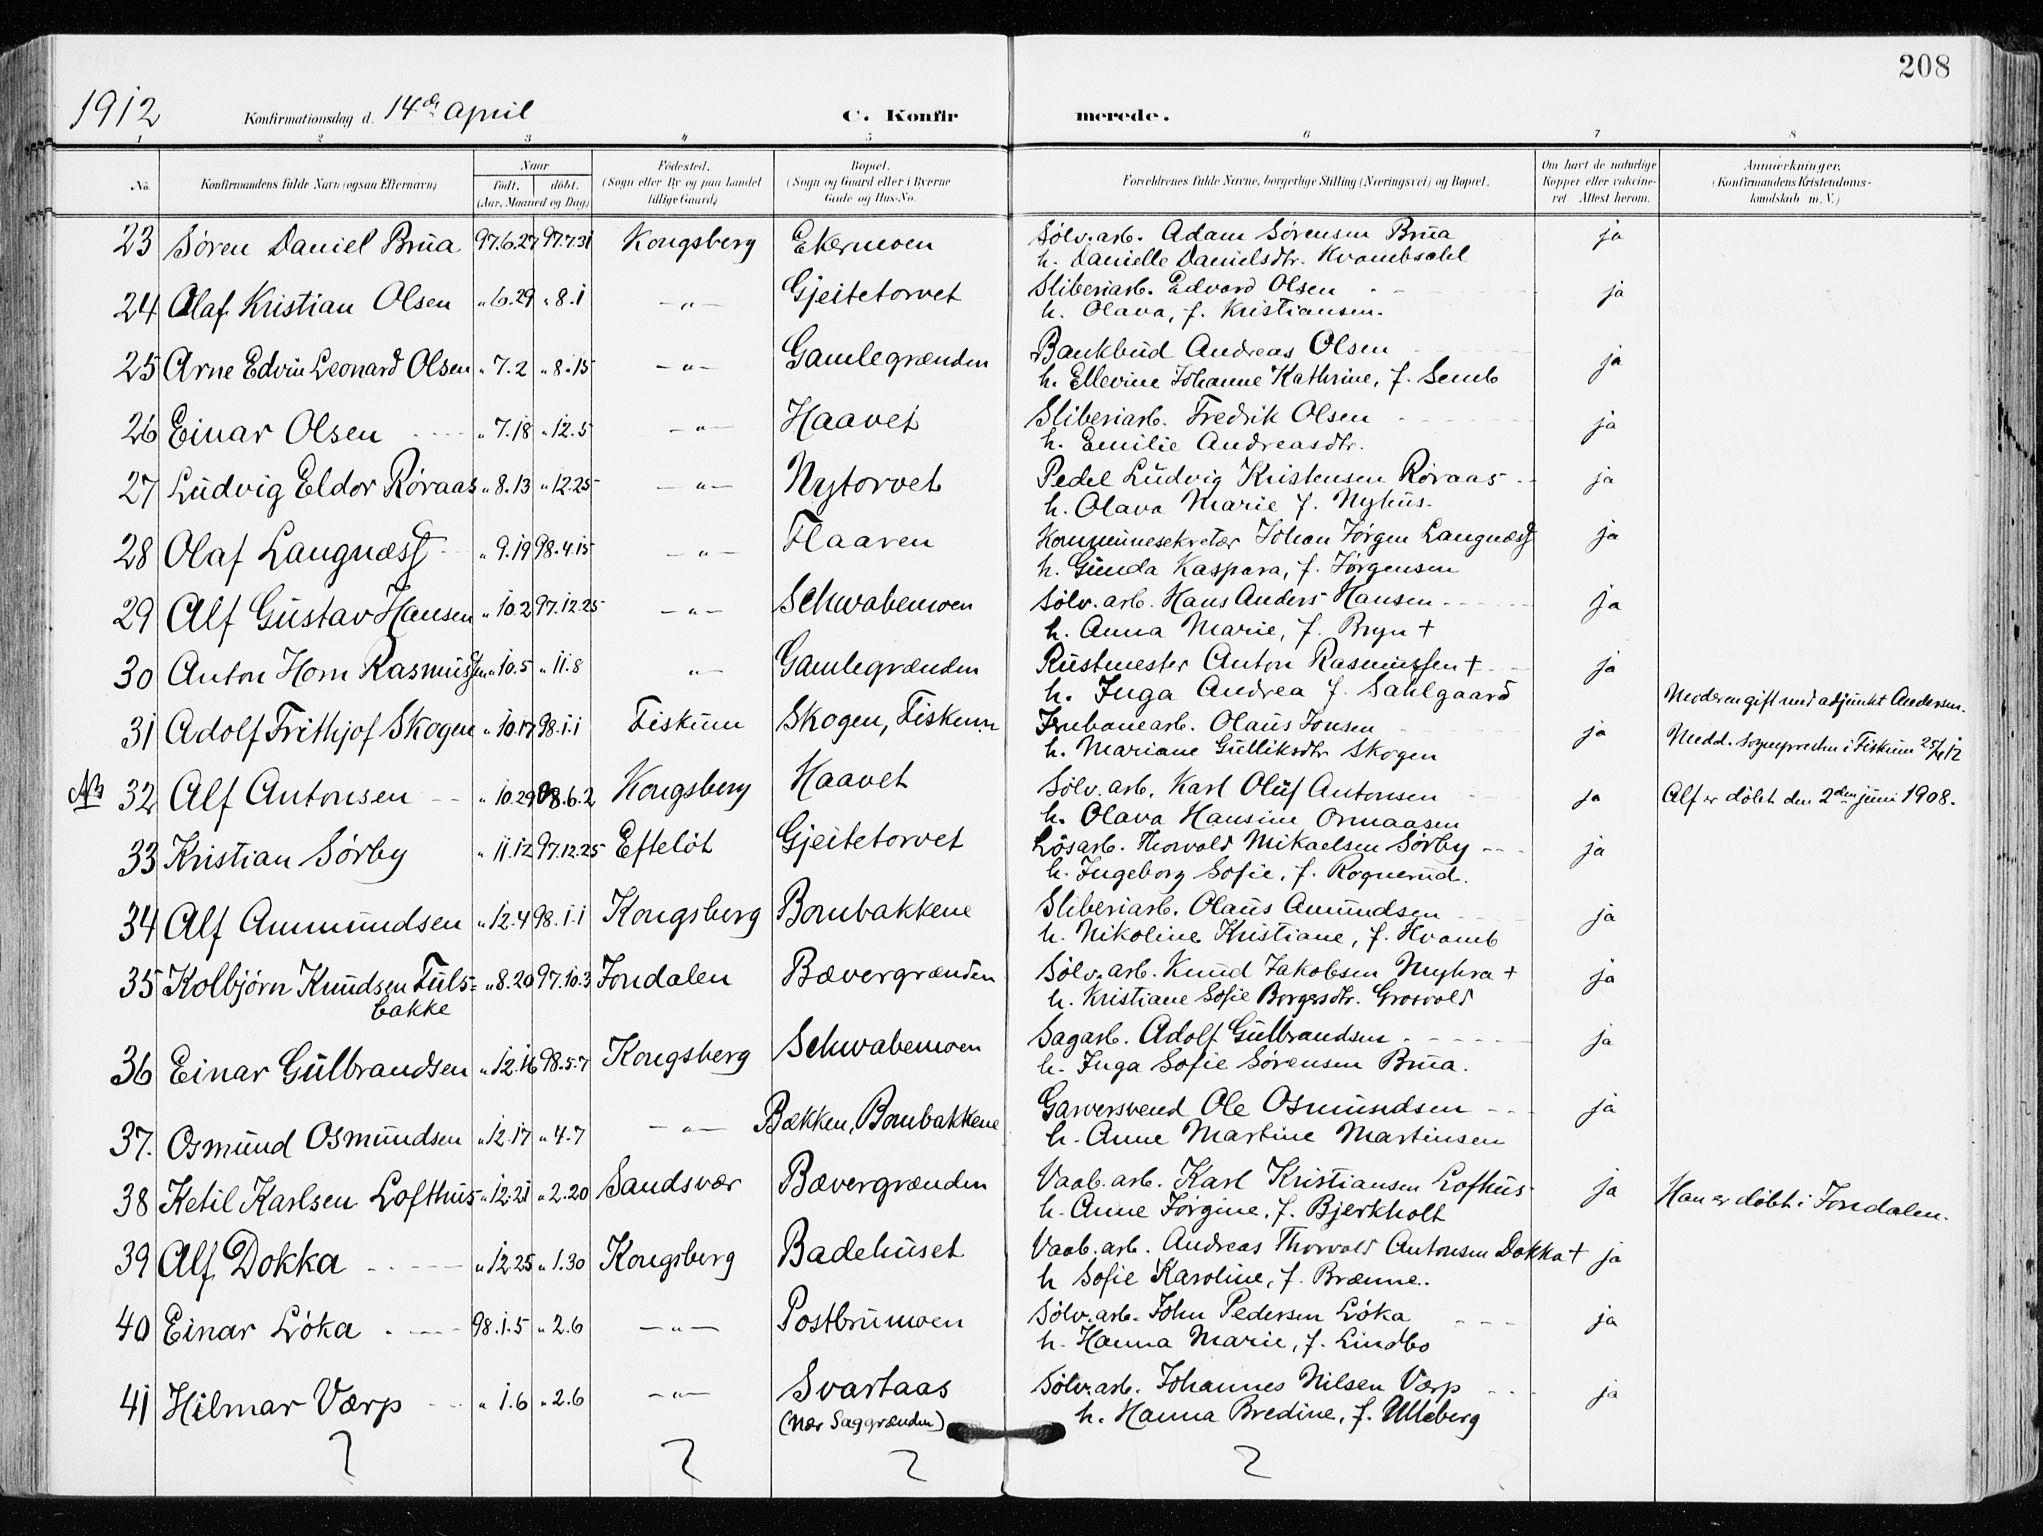 208
1912 Konfirmationsdag d. 14de april C. Konfirmerede.
1 2 3 4 5 6 7 8
No. Konfirmandens fulde Navn (ogsaa Efternavn) Naar født. døbt. (Aar, Maaned og Dag) Fødested. (Sogn eller By og paa Landet tillige Gaard) Bopæl. (Sogn og Gaard eller i Byerne Gade og Hus-No. Forældrenes fulde Navne, borgerlige Stilling (Næringsvei) og Bopæl. Om havt de naturlige Kopper eller vakcineret. Attest herom. Anmærkninger. (Konfirmandens Kristendomskundskab m. V.)
23 Søren Daniel Brua 97.6.27 97.7.31 Kongsberg Ekermoen Sølv.arb. Adam Sørensen Brua ja
h. Danielle Danielsdtr. Kvambsahl
24 Olaf Kristian Olsen " 6.29 " 8.1 -"- Gjeitetorvet Sliberiarb. Edvard Olsen ja
h. Olava, f. Kristiansen.
25 Arne Edvin Leonard Olsen " 7.2 " 8.15 -"- Gamlegrænden Bankbud Andreas Olsen ja
h. Ellevine Johanne Kathrine, f. Semb
26 Einar Olsen " 7.18 " 12.5 -"- Haavet Sliberiarb. Fredrik Olsen ja
h. Emilie Andreasdtr.
27 Ludvig Eldor Røraas " 8.13 " 12.25 -"- Nytorvet Pedel Ludvig Kristensen Røraas ja
h. Olava Marie f. Nyhus.
28 Olaf Langnæss " 9.19 98.4.15 -"- Flaaren Kommunesekretær Johan Jørgen Langnæss ja
h. Gunda Kaspara, f. Jørgensen
29 Alf Gustav Hansen " 10.2 97.12.25 -"- Schwabemoen Sølv.arb. Hans Anders Hansen ja
h. Anna Marie, f. Bryn +
30 Anton Horn Rasmussen " 10.5 " 11.8 "- Gamlegrænden Rustmester Anton Rasmussen + ja
h. Inga Andrea f. Sahlgaard Moderen gift med adjunkt Andersen.
31 Adolf Frithjof Skogen " 10.17 98.1.1 Fiskum Skogen, Fiskum Jrnbanearb. Olaus Jonsen ja Medd. sognepresten i Fiskum 25/4 12
h. Mariane Gulliksdtr Skogen
NB 32 Alf Antonsen " 10.29 98.6.2 Kongsberg Haavet Sølv.arb. Karl Oluf Antonsen ja Alf er døbt den 2den juni 1908.
h. Olava Hansine Ormaasen
33 Kristian Sørby " 11.12 97.12.25 Efteløt Gjeitetorvet Løsarb. Thorvald Mikaelsen Sørby ja
h. Ingeborg Sofie, f. Rognerud.
34 Alf Ammundsen " 12.4 98.1.1 Kongsberg Bombakkene Sliberiarb. Olaus Amundsen ja
h. Nikoline Kristiane, f. Hvamb
35 Kolbjørn Knudsen Tuls= " 8.20 97.10.3 Jondalen Bævergrænden Sølv.arb. Knud Jakobsen Myhra + ja
bakke h. Kristiane Sofie Borgersdtr. Grosvold
36 Einar Gulbrandsen " 12.16 98.5.7 Kongsberg Schwabemoen Sagarb. Adolf Gulbrandsen ja
h. Inga Sofie Sørensen Brua.
37. Osmund Osmundsen " 12.17 " 4.7 -"- Bækken, Bombakkene Garversvend Ole Osmundsen ja
h. Anne Martine Martinsen
38 Ketil Karlsen Lofthus " 12.21 " 2.20 Sandsvær Bævergrænden Vaab.arb. Karl Kristiansen Lofhus ja Han er døbt i Jondalen.
h. Anne Jørgine, f. Bjerkholt
39 Alf Dokka " 12.25 " 1.30 Kongsberg Badehuset Vaab.arb. Andreas Thorvald Antonsen Dokka + ja
h Sofie Karoline, f. Brænne.
40 Einar Løka 98.1.5 " 2.6 -"- Postbrumoen Sølv.arb. John Pedersen Løka ja
h. Hanna Marie, f. Lindbo
41 Hilmar Værp " 1.6 " 2.6 -"- Svartaas Sølv.arb. Johannes Nilsen Værp ja
(nær Saggrænden) h. Hanna Bredine, f. Ulleberg